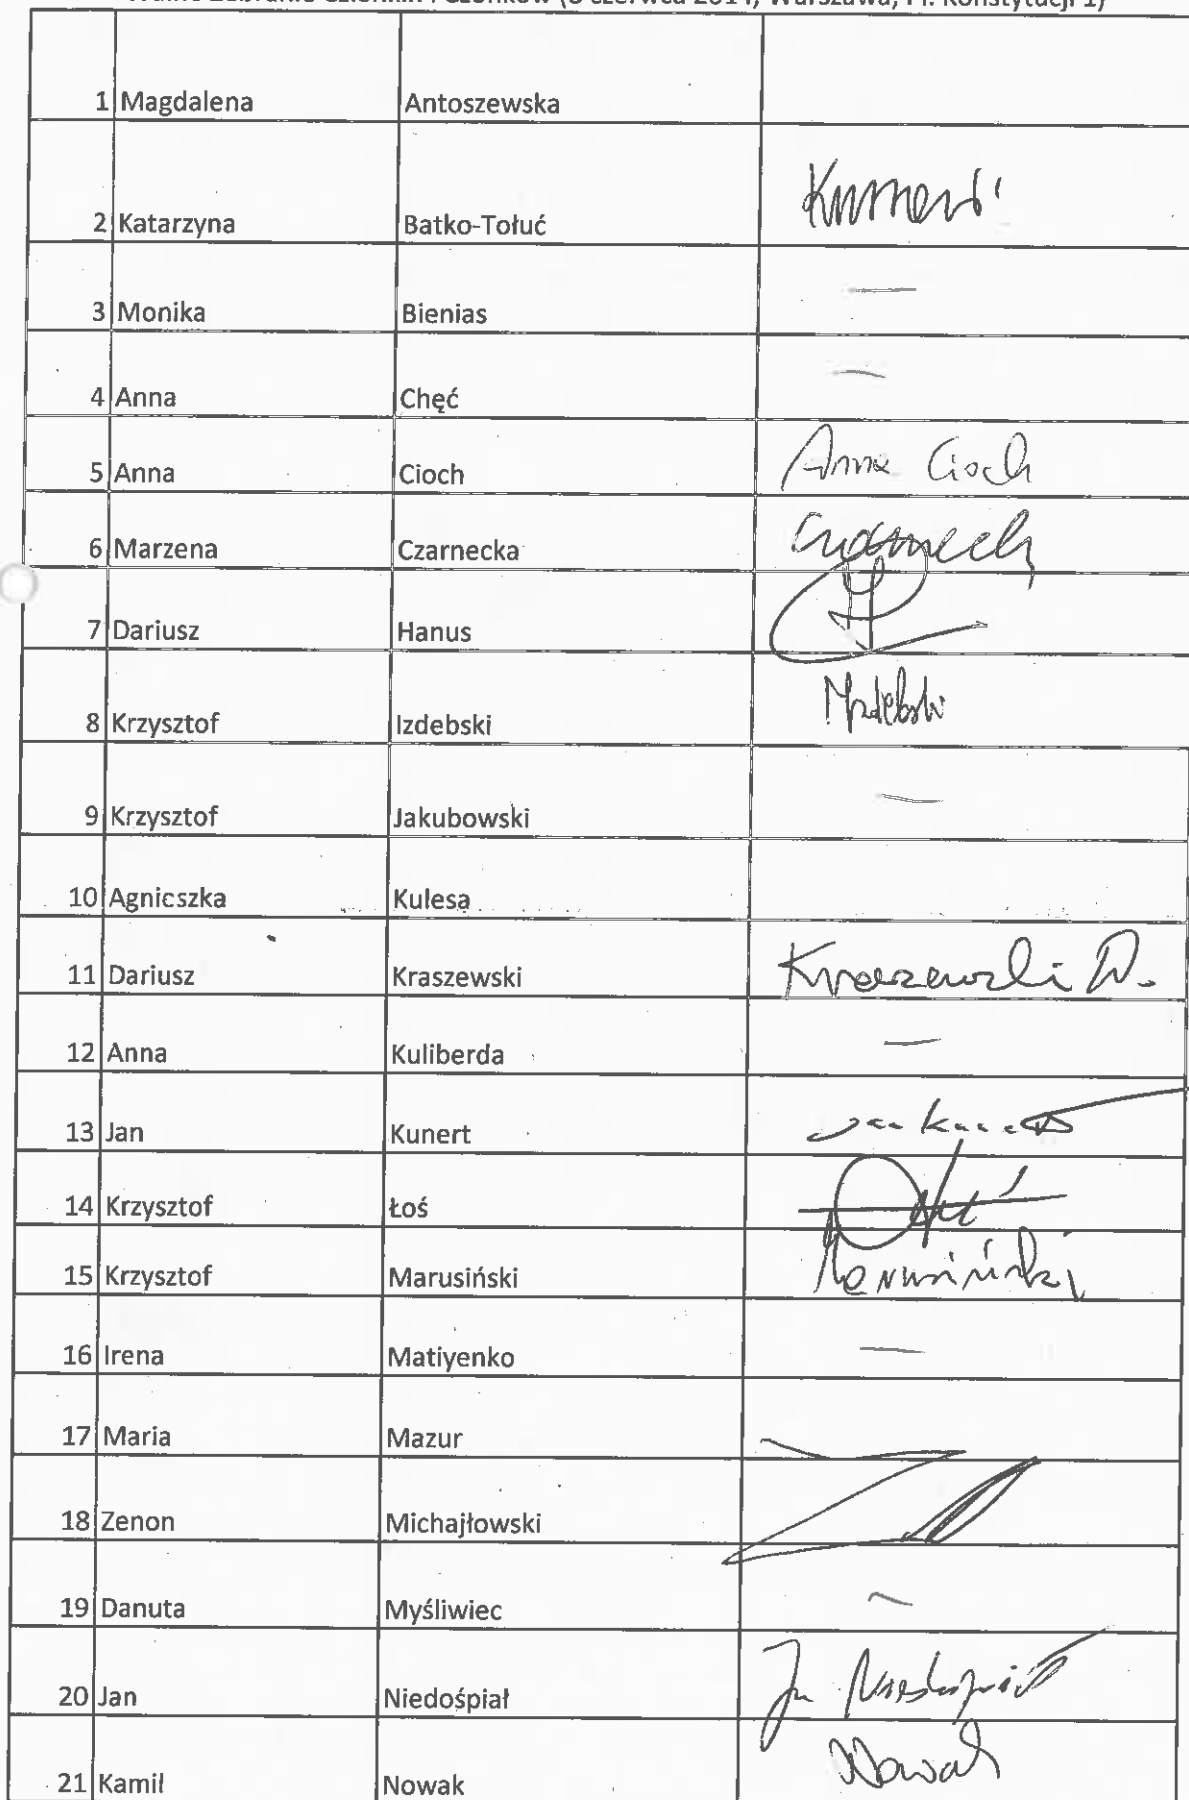 Walne Zebranie Członkiń i Członków (8 czerwca 2014, Warszawa, Pl. Konstytucji 1)
1 Magdalena Antoszewska
2 Katarzyna Batko-Tołuć
3 Monika Bienias —
4 Anna Chęć —
5 Anna Cioch Anna Cioch
6 Marzena Czarnecka
7 Dariusz Hanus
8 Krzysztof Izdebski Izdebski
9 Krzysztof Jakubowski —
10 Agnieszka Kulesa
11 Dariusz Kraszewski Kraszewski D.
12 Anna Kuliberda —
13 Jan Kunert Jan Kunert
14 Krzysztof Łoś
15 Krzysztof Marusiński Marusiński
16 Irena Matiyenko —
17 Maria Mazur
18 Zenon Michajłowski
19 Danuta Myśliwiec —
20 Jan Niedośpiał Jan Niedośpiał
21 Kamil Nowak Nowak